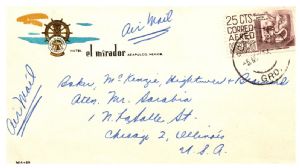 Air Mail
25 CTS
CORREO
AEREO
HOTEL el mirador ACAPULCO, MEXICO.
GRO.
Air Mail
Baker, McKenzie, Hightower &
Atten. Mr. Sarabia
1 N. LaSalle St.
Chicago 2, Illinois
U.S.A.